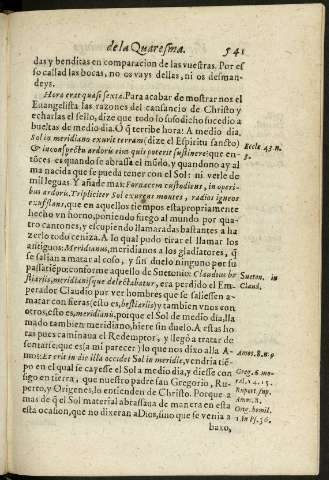 de la Quaresma. 541
das y benditas en comparacion de las vuestras. Por es
so callad las bocas, no os vays dellas, ni os desman-
deys.
Hora erat quasi sexta. Para acabar de mostrar nos el
Euangelista las razones del cansancio de Christo y
echarlas el sello, dize que todo lo susodicho sucedio a
bueltas de medio dia. O q̃ terribe hora! A medio dia,
Sol in meridiano exurit terram (dize el Espiritu sancto)
& in conspectu ardoris eius quis poterit sustinere? que en-
tõces es quando se abrasa el mũdo, y quando no ay al
ma nacida que se pueda tener con el Sol: ni verle de
mil leguas. Y añade mas: Fornacem custodiens, in operi-
bus ardoris. Tripliciter Sol exurens montes, radios igneos
exufflans, que en aquellos tiempos esta propriamente
hecho vn horno, poniendo fuego al mundo por qua-
tro cantones, y escupiendo llamaradas bastantes a ha
zerlo todo ceniza. A lo qual pudo tirar el llamar los
antiguos: Meridianus, meridianos a los gladiatores, q̃
se salian a matar al coso, y sin duelo ninguno por su
passatiẽpo: conforme aquello de Suetonio: Claudius be
stiarijs, meridianisque delectabatur, era perdido el Em-
perador Claudio por ver hombres que se saliessen a
matar con fieras (esto es, bestiarijs) y tambien vnos con
otros, esto es, meridianis, porque el Sol de medio dia, lla
mado tambien meridiano, hiere sin duelo. A estas ho
ras pues caminaua el Redemptor, y llegó a tratar de
sentarse, que esta (a mi parecer) lo que nos dixo allà A-
mos: Et erit in die illa occidet Sol in meridie, vendria tiẽ-
po en el qual se cayesse el Sol a medio dia, y diesse con
sigo en tierra, que nuestro padre san Gregorio, Ru-
perto, y Origenes, lo entienden de Christo. Porque a
mas de q̃ el Sol material abrassaua de manera en esta
esta ocasion, que no dixeran a Dios, sino que se venia a
baxo,
Eccle. 43. n.
3.
Sueton. in
Claud.
Amos. 8. n. 9
Greg. 6. mo-
ral. c. 15.
Rupert. sup.
Amos. 8.
Orig. homil.
1. in Ps. 36.